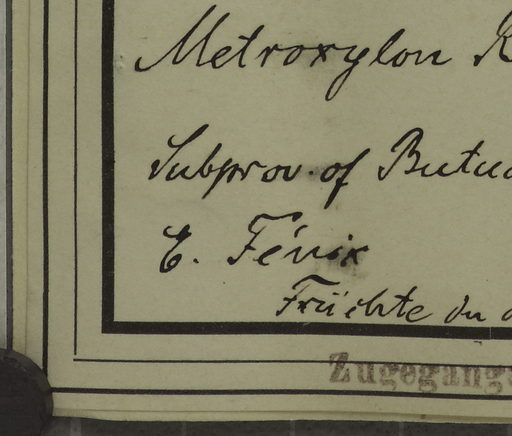 Metroxylon
Subprov. of Butua
E. Fénix
Früchte in
Zugegange